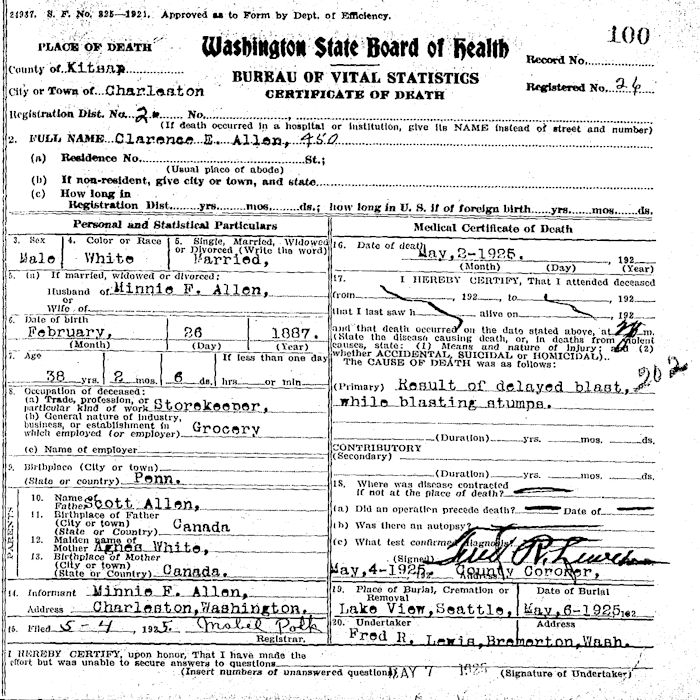 24937. S. F. No. 825—1921. Approved as to Form by Dept. of Efficiency.
100
PLACE OF DEATH
Washington State Board of Health
County of Kitsap
Record No.
BUREAU OF VITAL STATISTICS
City or Town of Charleston
CERTIFICATE OF DEATH
Registered No. 26
Registration Dist. No. 2 No.
(If death occurred in a hospital or institution, give its NAME instead of street and number)
2. FULL NAME Clarence E. Allen, 450
(a) Residence No. St.;
(Usual place of abode)
(b) If non-resident, give city or town, and state
(c) How long in
Registration Dist. yrs. mos. ds.; how long in U. S. if of foreign birth yrs. mos. ds.
Personal and Statistical Particulars
3. Sex
Male
4. Color or Race
White
5. Single, Married, Widowed
or Divorced (Write the word)
Married,
5. (a) If married, widowed or divorced:
Husband of Minnie F. Allen,
or
Wife of
6. Date of birth
February, 26 1887.
(Month) (Day) (Year)
7. Age
If less than one day
38 yrs. 2 mos. 6 ds. hrs. or min.
8. Occupation of deceased:
(a) Trade, profession, or
particular kind of work Storekeeper,
(b) General nature of industry,
business, or establishment in
which employed (or employer) Grocery
(c) Name of employer
9. Birthplace (City or town)
(State or country) Penn.
PARENTS
10. Name of
Father Scott Allen,
11. Birthplace of Father
(City or town)
(State or Country) Canada
12. Maiden name of
Mother Agnes White,
13. Birthplace of Mother
(City or town)
(State or Country) Canada.
14. Informant Minnie F. Allen,
Address Charleston, Washington.
15. Filed 5-4, 1925. Mabel Polk
Registrar.
Medical Certificate of Death
16. Date of death May, 2-1925. , 192
(Month) (Day) (Year)
17. I HEREBY CERTIFY, That I attended deceased
from , 192 to , 192
that I last saw h alive on , 192
and that death occurred on the date stated above, at m.
(State the disease causing death, or, in deaths from violent
causes, state: (1) Means and nature of injury; and (2)
whether ACCIDENTAL, SUICIDAL or HOMICIDAL).
The CAUSE OF DEATH was as follows:
202
(Primary) Result of delayed blast,
while blasting stumps.
(Duration) yrs. mos. ds.
CONTRIBUTORY
(Secondary)
(Duration) yrs. mos. ds.
18. Where was disease contracted
if not at the place of death?
(a) Did an operation precede death? Date of
(b) Was there an autopsy?
(c) What test confirmed diagnosis?
(Signed) Fred R. Lewis
May, 4-1925. 192 Address County Coroner,
19. Place of Burial, Cremation or
Removal
Lake View, Seattle,
Date of Burial
May, 6-1925. 192
20. Undertaker
Address
Fred R. Lewis, Bremerton, Wash.
I HEREBY CERTIFY, upon honor, That I have made the
effort but was unable to secure answers to questions
(Insert numbers of unanswered questions)
MAY 7 1925
(Signature of Undertaker)